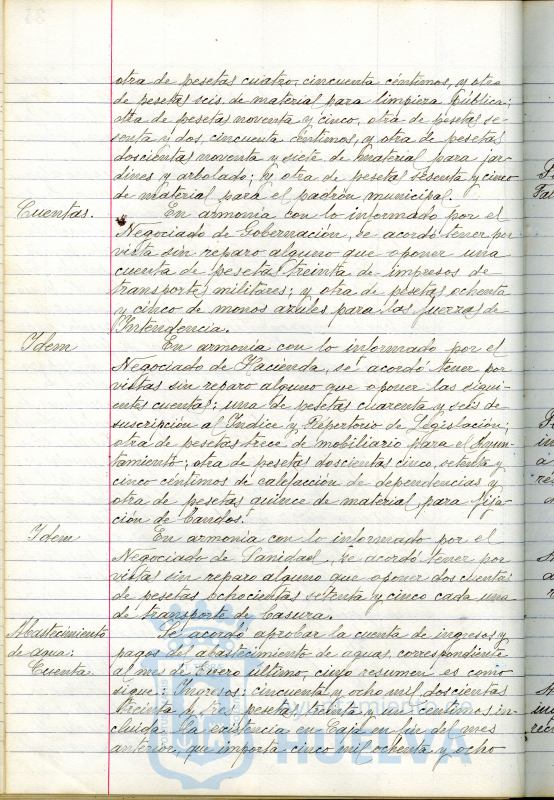 otra de pesetas cuatro, cincuenta céntimos, y otra
de pesetas seis de material para limpieza pública;
otra de pesetas noventa y cinco, otra de pesetas se-
senta y dos, cincuenta céntimos, y otra de pesetas
doscientas noventa y siete de material para jar-
dines y arbolado; y otra de pesetas sesenta y cinco
de material para el padrón municipal.
Cuentas. En armonía con lo informado por el
Negociado de Gobernación, se acordó tener por
vista sin reparo alguno que oponer una
cuenta de pesetas treinta de impresos de
transportes militares; y otra de pesetas ochenta
y cinco de monos azules para las fuerzas de
Intendencia.
Idem En armonía con lo informado por el
Negociado de Hacienda, se acordó tener por
vistas sin reparo alguno que oponer las sigui-
entes cuentas: una de pesetas cuarenta y seis de
suscripción al Indice y Repertorio de Legislación;
otra de pesetas trece de mobiliario para el Ayun-
tamiento; otra de pesetas doscientas cinco, setenta y
cinco céntimos de calefacción de dependencias y
otra de pesetas quince de material para fija-
ción de bandos.
Idem En armonía con lo informado por el
Negociado de Sanidad, se acordó tener por
vistas sin reparo alguno que oponer dos cuentas
de pesetas ochocientas setenta y cinco cada una
de transporte de basura.
Abastecimiento Se acordó aprobar la cuenta de ingresos y
de agua: pagos del abastecimiento de aguas, correspondiente
Cuenta. al mes de Enero último, cuyo resumen es como
sigue: Ingresos: cincuenta y ocho mil doscientas
treinta y tres pesetas, treinta y un céntimos in-
cluida la existencia en Caja en fin del mes
anterior, que importa cinco mil ochenta y ocho
Ayuntamiento de
HUELVA